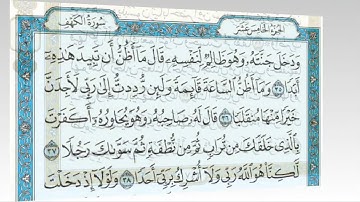 سُورَةُ الكَهْفِ
الجُزْءُ الخَامِسَ عَشَرَ
وَدَخَلَ جَنَّتَهُۥ وَهُوَ ظَالِمٌ لِّنَفْسِهِۦ قَالَ مَآ أَظُنُّ أَن تَبِيدَ هَٰذِهِۦٓ
أَبَدًا ٣٥ وَمَآ أَظُنُّ ٱلسَّاعَةَ قَآئِمَةً وَلَئِن رُّدِدتُّ إِلَىٰ رَبِّي لَأَجِدَنَّ
خَيْرًا مِّنْهَا مُنقَلَبًا ٣٦ قَالَ لَهُۥ صَاحِبُهُۥ وَهُوَ يُحَاوِرُهُۥٓ أَكَفَرْتَ
بِٱلَّذِي خَلَقَكَ مِن تُرَابٍ ثُمَّ مِن نُّطْفَةٍ ثُمَّ سَوَّىٰكَ رَجُلًا ٣٧
لَّٰكِنَّا۠ هُوَ ٱللَّهُ رَبِّي وَلَآ أُشْرِكُ بِرَبِّيٓ أَحَدًا ٣٨ وَلَوْلَآ إِذْ دَخَلْتَ